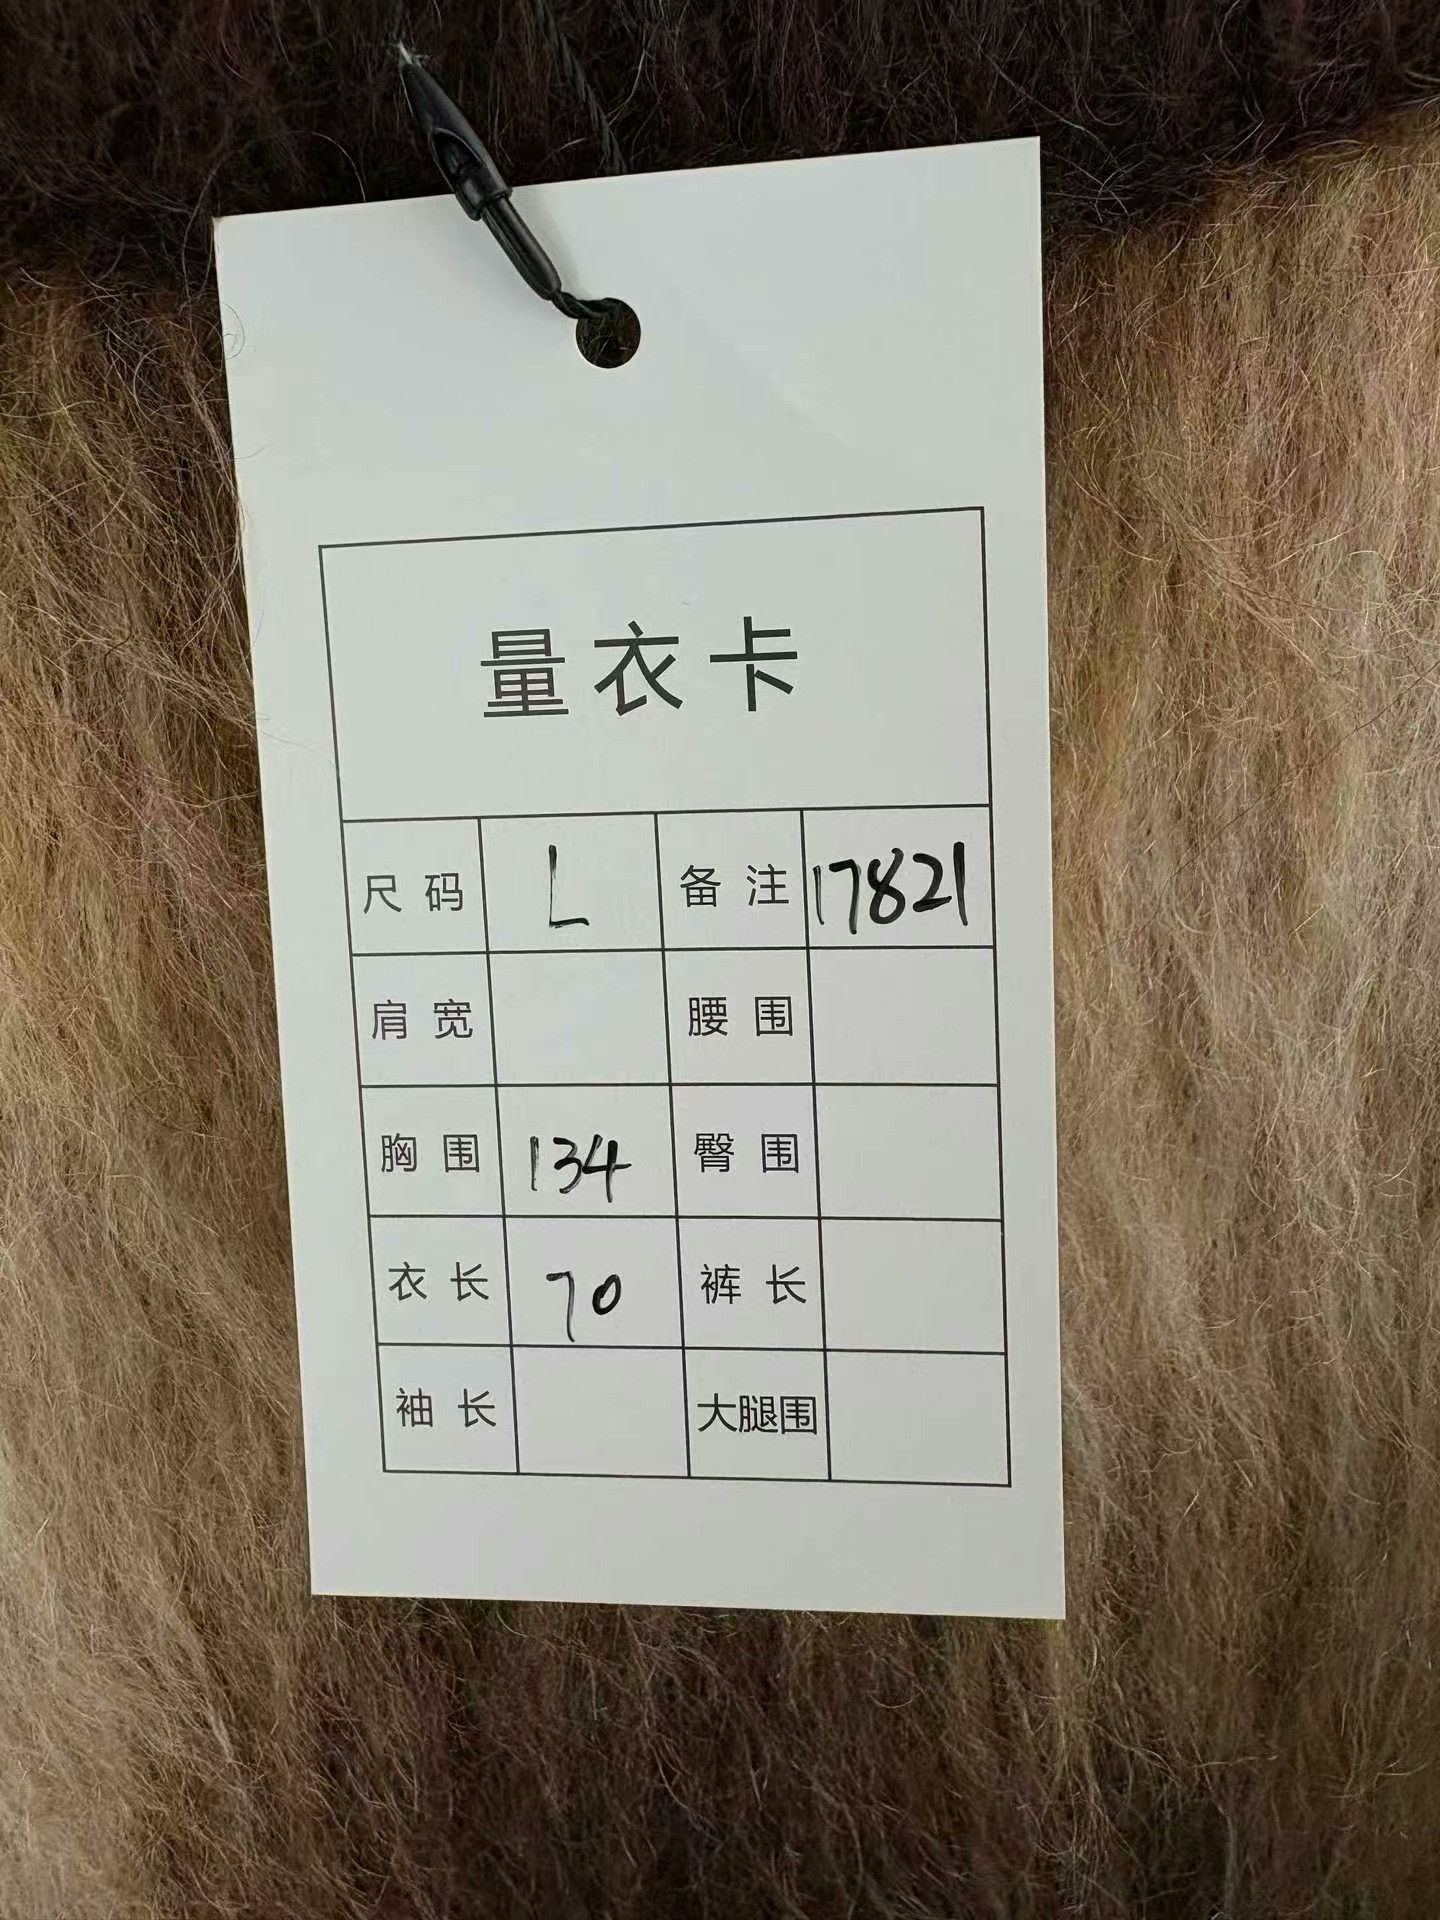 量衣卡
尺码 L 备注 17821
肩宽 腰围
胸围 134 臀围
衣长 70 裤长
袖长 大腿围